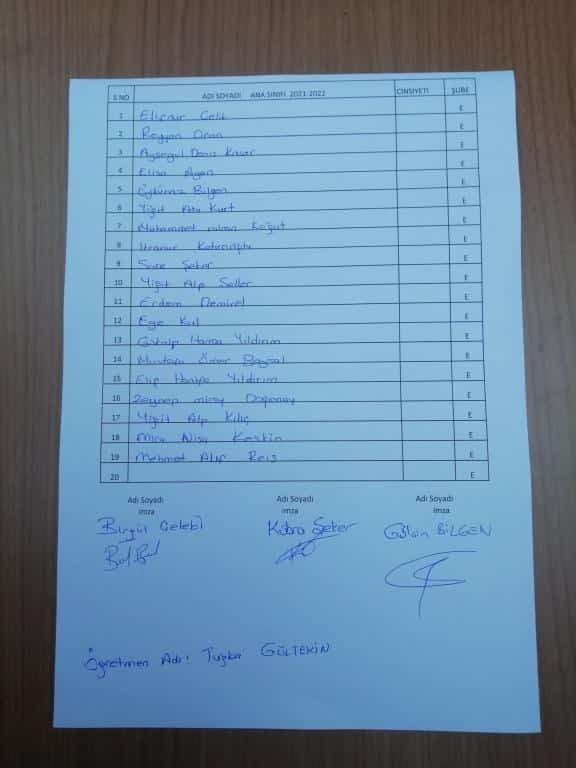 S.NO ADI SOYADI ANA SINIFI 2021-2022 CİNSİYETİ ŞUBE
1 Elifnur Çelik E
2 Reyyan Ozan E
3 Ayşegül Deniz E
4 Elisa Ayan E
5 Öykünaz Bilgen E
6 Yiğit Ata Kurt E
7 Muhammet Koğut E
8 İlkanur E
9 Sare Şeker E
10 Yiğit Alp Seller E
11 Erdem Demirel E
12 Ege Kul E
13 Göktalp Hamza Yıldırım E
14 Mustafa Ömer Baysal E
15 Elif Yıldırım E
16 Zeynep Miray Doğanay E
17 Yiğit Alp Kılıç E
18 Mira Nisa Keskin E
19 Mehmet Alip Reis E
20 E
Adı Soyadı Adı Soyadı Adı Soyadı
imza imza imza
Birgül Çelebi Kübra Şeker Gülsin BİLGEN
Öğretmen Adı: Tuğba GÜLTEKİN